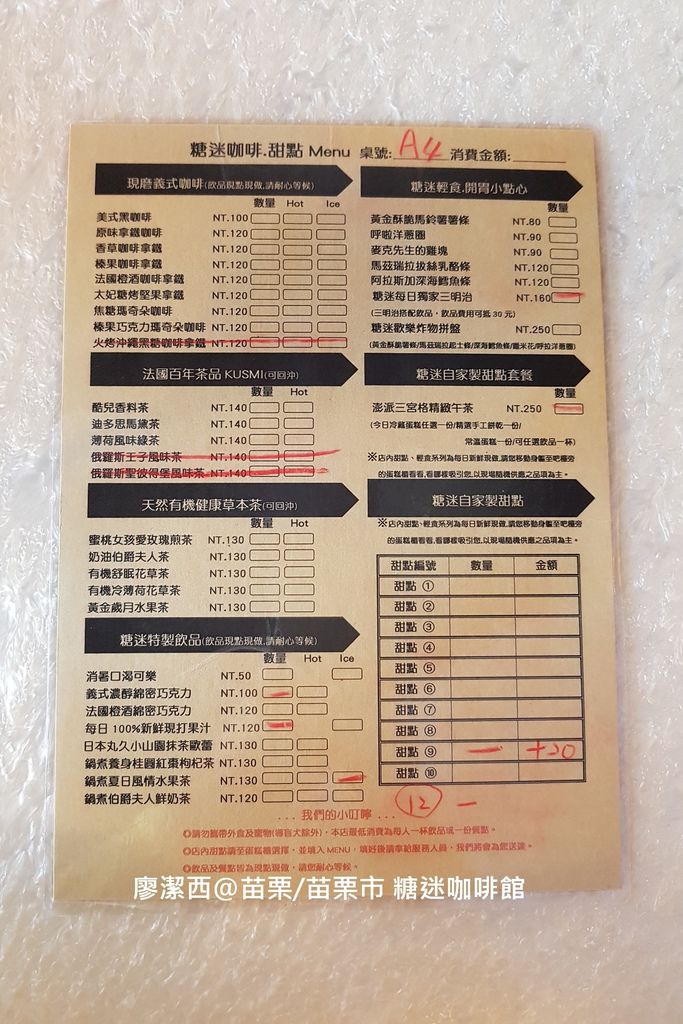 糖迷咖啡.甜點 Menu 桌號: A4 消費金額:
現磨義式咖啡(飲品現點現做,請耐心等候)
數量 Hot Ice
美式黑咖啡 NT.100
原味拿鐵咖啡 NT.120
香草咖啡拿鐵 NT.120
榛果咖啡拿鐵 NT.120
法國橙酒咖啡拿鐵 NT.120
太妃糖烤堅果拿鐵 NT.120
焦糖瑪奇朵咖啡 NT.120
榛果巧克力瑪奇朵咖啡 NT.120
火烤沖繩黑糖咖啡拿鐵 NT.120
法國百年茶品 KUSMI(可回沖)
數量 Hot
酷兒香料茶 NT.140
迪多思馬黛茶 NT.140
薄荷風味綠茶 NT.140
俄羅斯王子風味茶 NT.140
俄羅斯聖彼得堡風味茶 NT.140
天然有機健康草本茶(可回沖)
數量 Hot
蜜桃女孩愛玫瑰煎茶 NT.130
奶油伯爵夫人茶 NT.130
有機舒眠花草茶 NT.130
有機冷薄荷花草茶 NT.130
黃金歲月水果茶 NT.130
糖迷特製飲品(飲品現點現做,請耐心等候)
數量 Hot Ice
消暑口渴可樂 NT.50
義式濃醇綿密巧克力 NT.100
法國橙酒綿密巧克力 NT.120
每日 100%新鮮現打果汁 NT.120
日本丸久小山園抹茶歐蕾 NT.130
鍋煮養身桂圓紅棗枸杞茶 NT.130
鍋煮夏日風情水果茶 NT.130
鍋煮伯爵夫人鮮奶茶 NT.120
糖迷輕食.開胃小點心
數量
黃金酥脆馬鈴薯薯條 NT.80
呼啦洋蔥圈 NT.90
麥克先生的雞塊 NT.90
馬茲瑞拉拔絲乳酪條 NT.120
阿拉斯加深海鱈魚條 NT.120
糖迷每日獨家三明治 NT.160
(三明治搭配飲品,飲品費用可抵 30 元)
糖迷歡樂炸物拼盤 NT.250
(黃金酥脆薯條/馬茲瑞拉起士條/深海鱈魚條/雞米花/呼拉洋蔥)
糖迷自家製甜點套餐
數量
澎派三宮格精緻午茶 NT.250
(今日冷藏蛋糕任選一份/精選手工餅乾一份/
常溫蛋糕一份/可任選飲品一杯)
※店內甜點、輕食系列為每日新鮮現做,請您移動身軀至吧檯旁
的蛋糕櫃看看,看哪樣吸引您,以現場隨機供應之品項為主。
糖迷自家製甜點
※店內甜點、輕食系列為每日新鮮現做,請您移動身軀至吧檯旁
的蛋糕櫃看看,看哪樣吸引您,以現場隨機供應之品項為主。
甜點編號 數量 金額
甜點 ①
甜點 ②
甜點 ③
甜點 ④
甜點 ⑤
甜點 ⑥
甜點 ⑦
甜點 ⑧
甜點 ⑨ 一 +20
甜點 ⑩
12 一
... 我們的小叮嚀 ...
◎請勿攜帶外食及寵物(導盲犬除外),本店最低消費為每人一杯飲品或一份餐點。
◎店內甜點請至蛋糕櫃選擇,並填入 MENU,填好後請奉給服務人員,我們將會為您送達。
◎飲品及餐點皆為現點現做,請您耐心等候。
廖潔西@苗栗/苗栗市 糖迷咖啡館